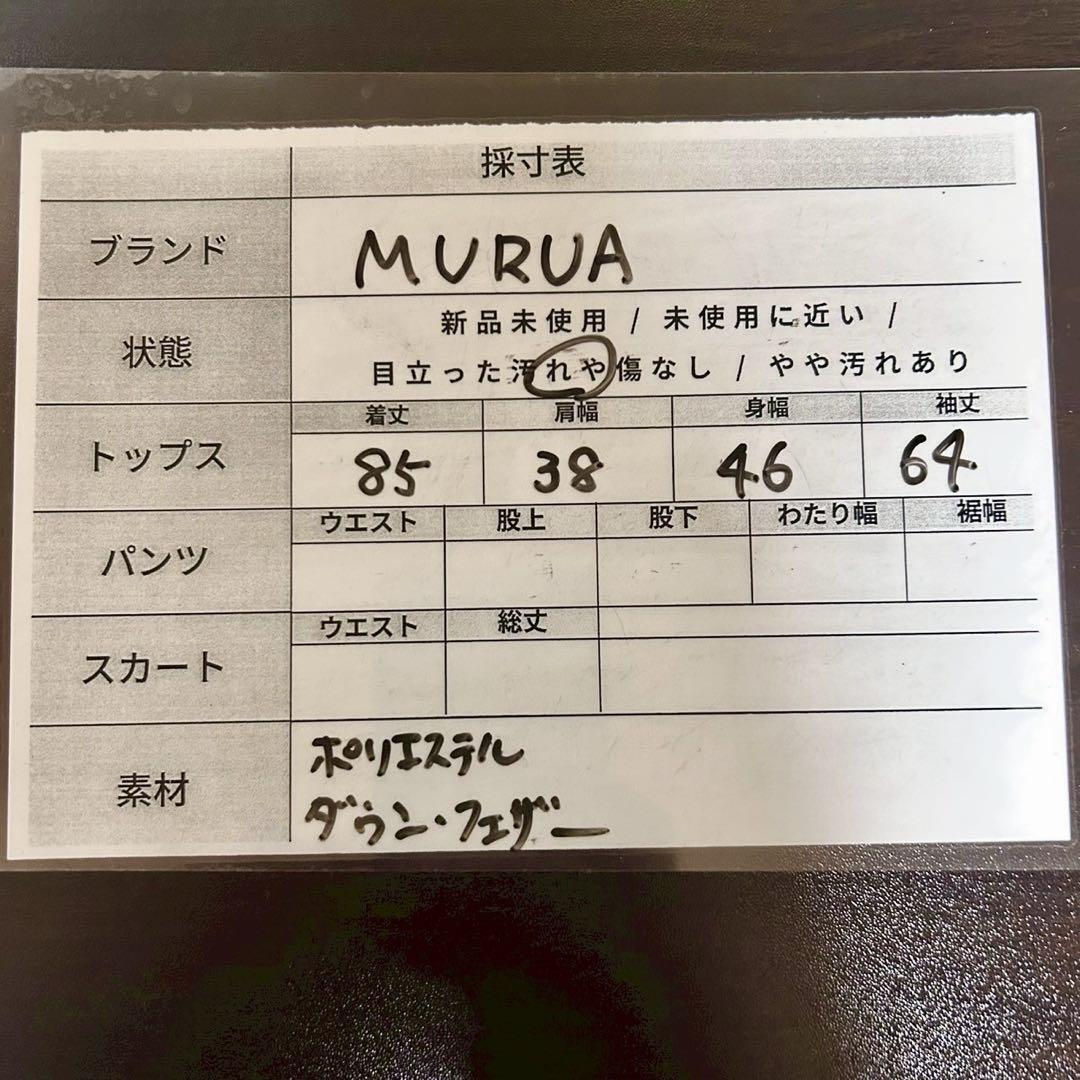 採寸表
ブランド MURUA
状態 新品未使用 / 未使用に近い /
目立った汚れや傷なし / やや汚れあり
着丈 肩幅 身幅 袖丈
トップス 85 38 46 64
ウエスト 股上 股下 わたり幅 裾幅
パンツ
ウエスト 総丈
スカート
素材 ポリエステル
ダウン・フェザー